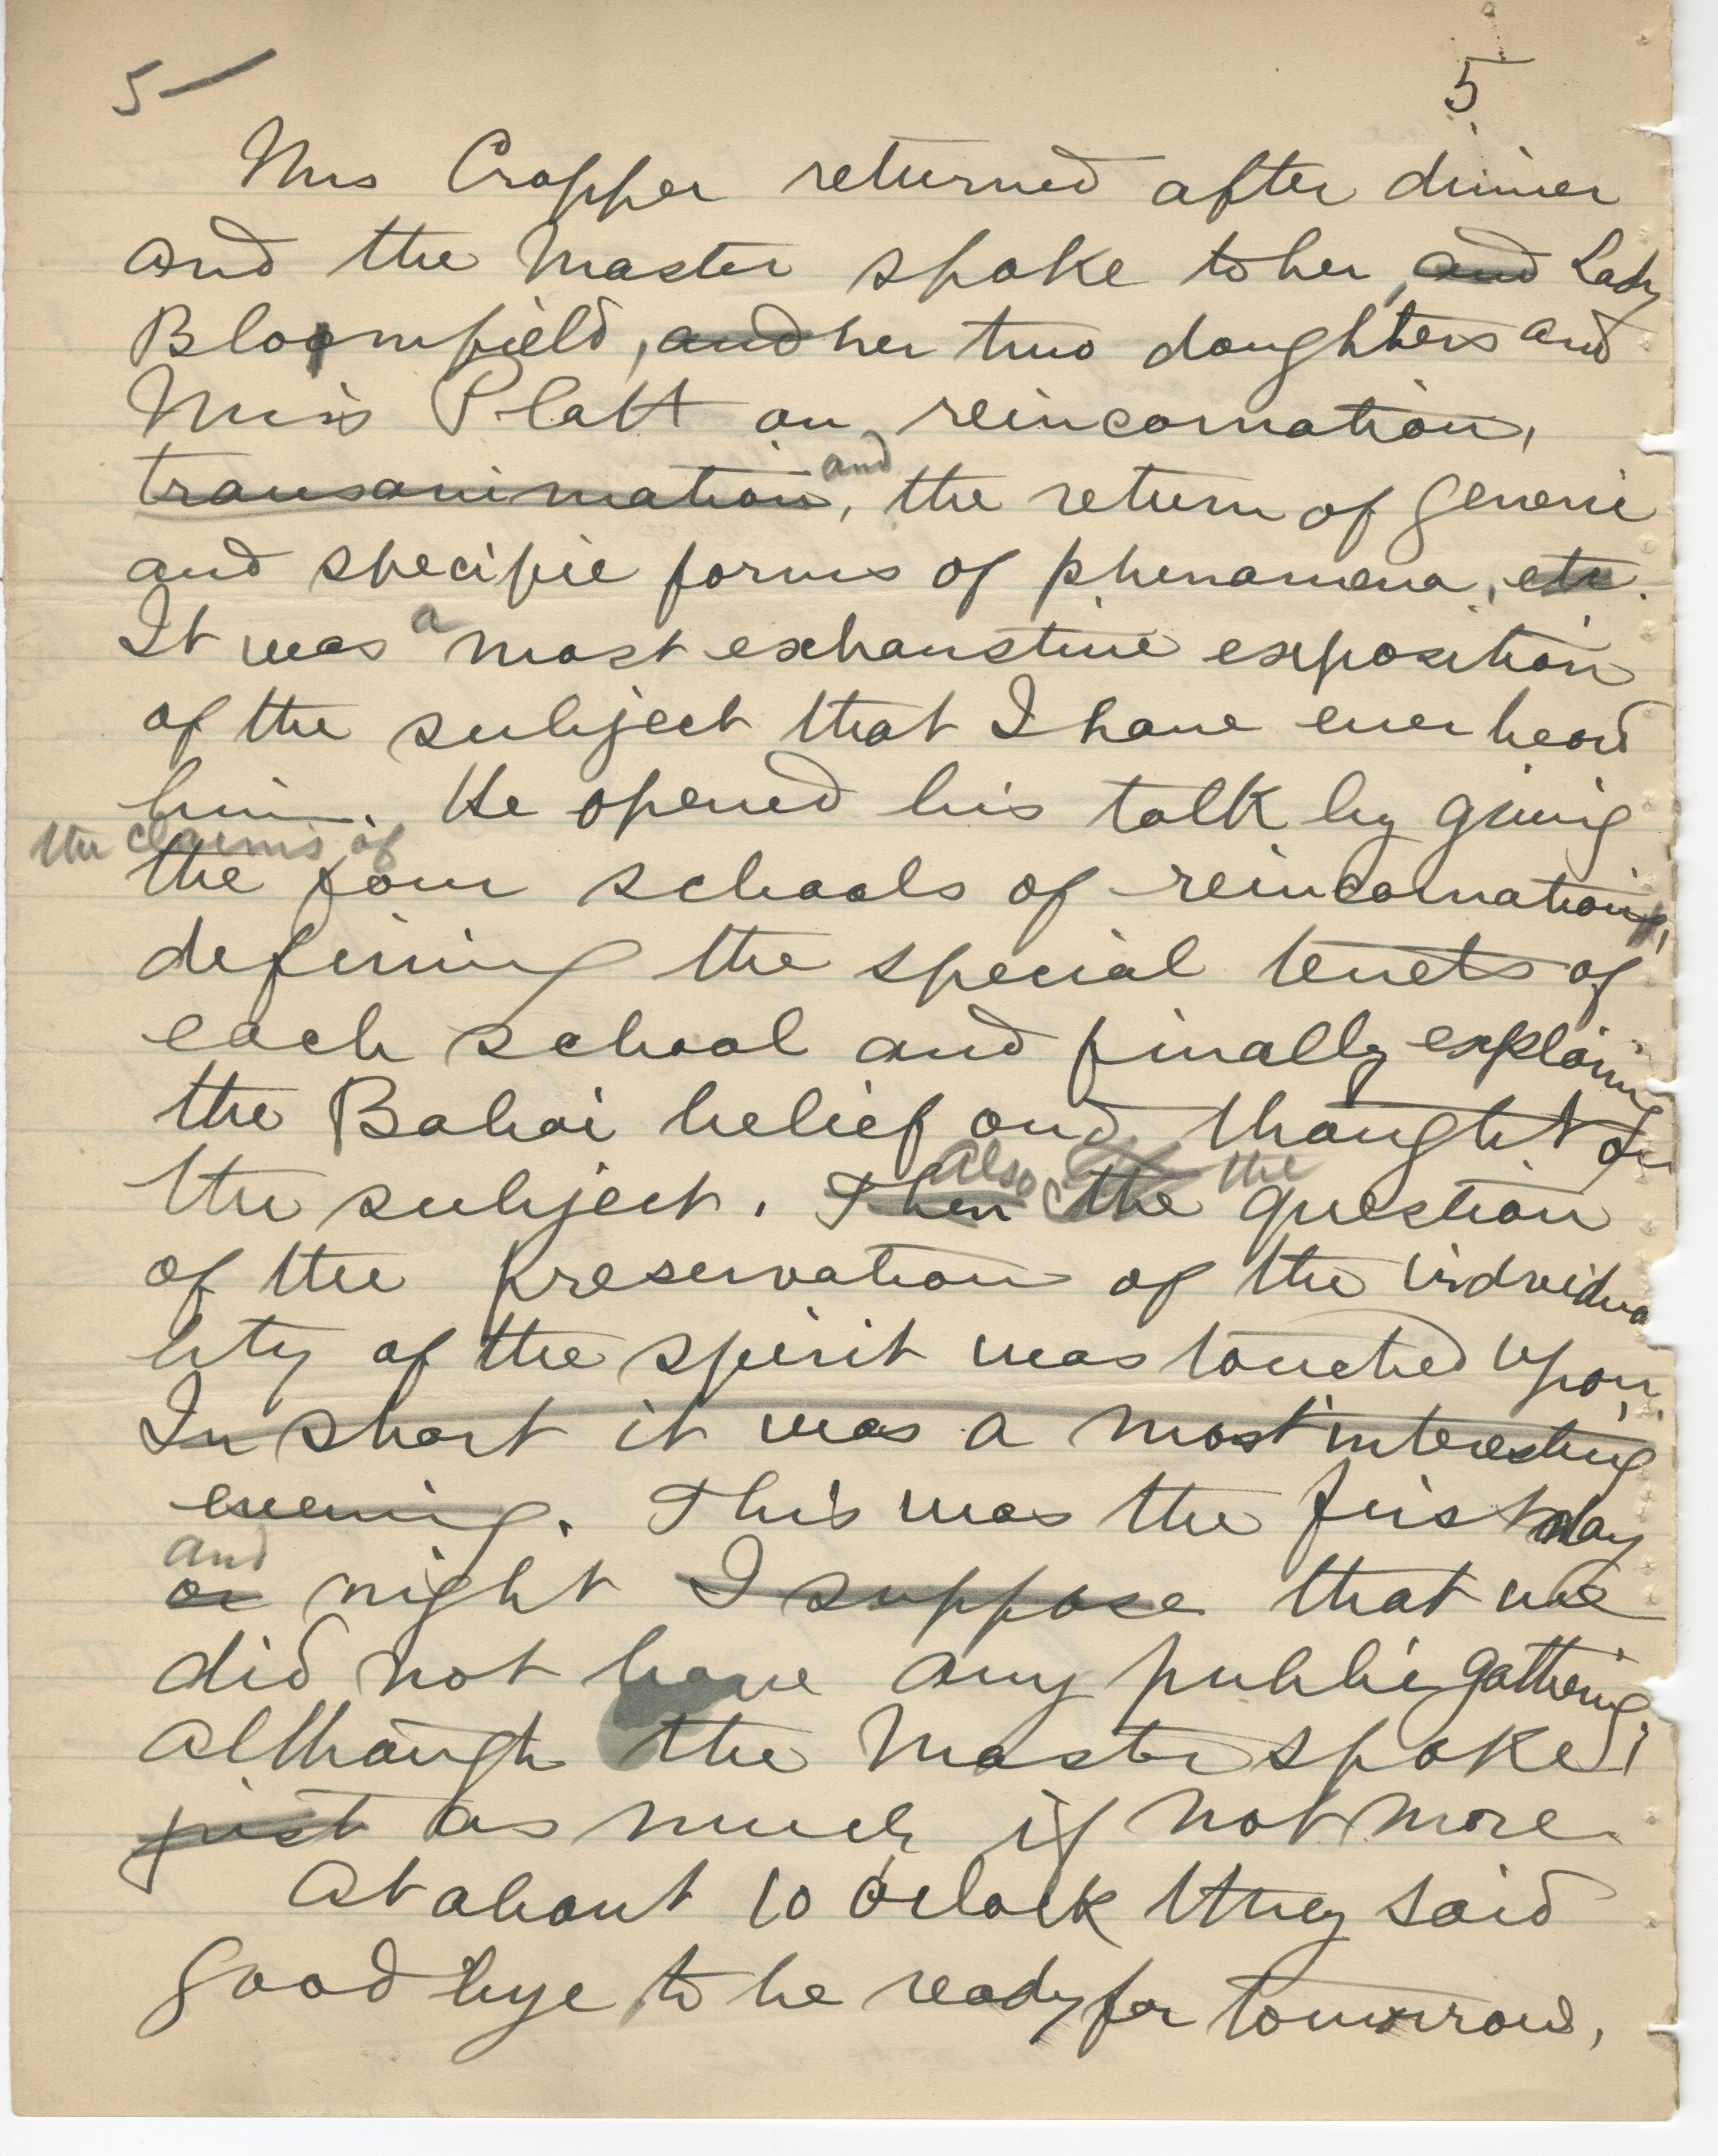 5 5
Mrs Cropper returned after dinner
and the Master spoke to her, and Lady
Bloomfield, and her two daughters and
Miss Platt on reincarnation,
transanimation, and the return of generic
and specific forms of phenomena, etc.
It was a most exhaustive exposition
of the subject that I have ever heard
him. He opened his talk by giving
the claims of
the four schools of reincarnations,
defining the special tenets of
each school and finally explaining
the Bahai belief and thought on
the subject. Then also the the question
of the preservation of the individua
lity of the spirit was touched upon.
In short it was a most interesting
evening. This was the first day
and
or night I suppose that we
did not have any public gathering,
although the Master spoke,
just as much if not more.
At about 10 o'clock they said
good bye to be ready for tomorrow.